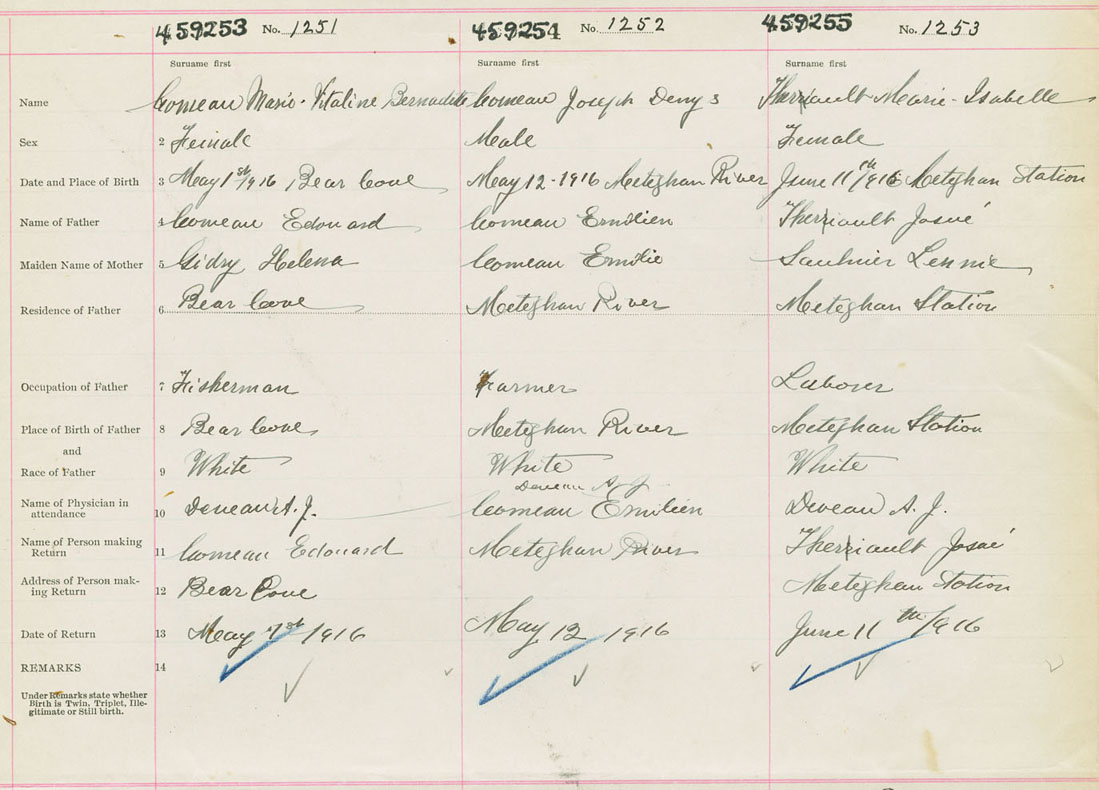 459253 No. 1251 459254 No. 1252 459255 No. 1253
Surname first Surname first Surname first
Name Comeau Marie-Vitaline Bernadette Comeau Joseph Denys Therriault Marie-Isabelle
Sex 2 Female Male Female
Date and Place of Birth 3 May 1st/1916 Bear Cove May 12-1916 Meteghan River June 11th/1916 Meteghan Station
Name of Father 4 Comeau Edouard Comeau Emilien Therriault Josué
Maiden Name of Mother 5 Gidry Helena Comeau Emilie Saulnier Lennie
Residence of Father 6 Bear Cove Meteghan River Meteghan Station
Occupation of Father 7 Fisherman Farmer Laborer
Place of Birth of Father 8 Bear Cove Meteghan River Meteghan Station
and
Race of Father 9 White White White
Deveau A. J.
Name of Physician in
attendance 10 Deveau A. J. Comeau Emilien Deveau A. J.
Name of Person making
Return 11 Comeau Edouard Meteghan River Therriault Josué
Address of Person mak-
ing Return 12 Bear Cove Meteghan Station
Date of Return 13 May 1st/1916 May 12 1916 June 11th/1916
REMARKS 14
Under Remarks state whether
Birth is Twin, Triplet, Ille-
gitimate or Still birth.